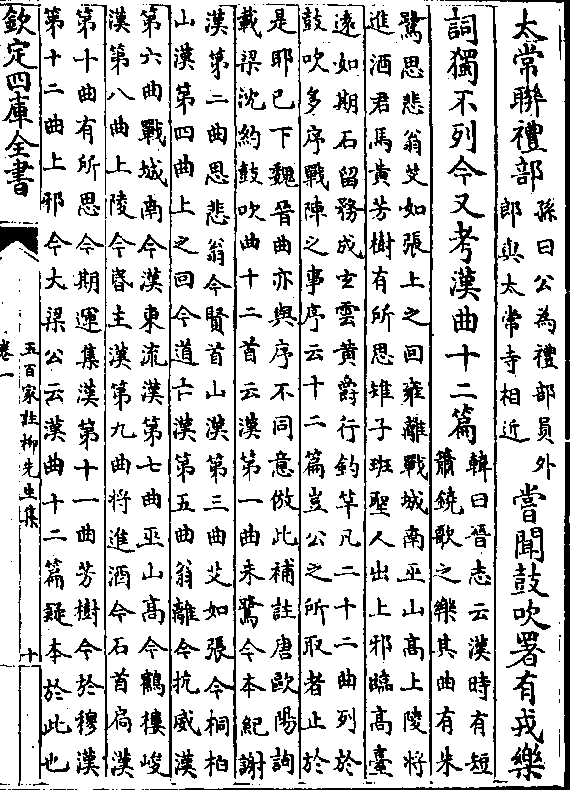 太常聯禮部孫曰公為禮部員外
郎與太常寺相近嘗聞鼓吹署有戎樂
詞獨不列今又考漢曲十二篇韓曰晉志云漢時有短
簫鐃歌之樂其曲有朱
鷺思悲翁艾如張上之回雍離戰城南巫山髙上陵將
進酒君馬黄芳樹有所思雉子班聖人出上邪臨髙臺
逺如期石留務成玄雲黄爵行釣竿凡二十二曲列於
鼓吹多序戰陣之事序云十二篇豈公之所取者止於
是耶已下魏晉曲亦與序不同意倣此補註唐歐陽詢
載梁沈約鼓吹曲十二首云漢第一曲朱鷺今本紀謝
漢第二曲思悲翁今賢首山漢第三曲艾如張今桐柏
山漢第四曲上之回今道亡漢第五曲翁離今抗威漢
第六曲戰城南今漢東流漢第七曲巫山髙今鶴樓峻
漢第八曲上陵今昏主漢第九曲將進酒今石首扃漢
第十曲有所思今期運集漢第十一曲芳樹今於穆漢
第十二曲上邪今大梁公云漢曲十二篇疑本於此也
欽定四庫全書
卷一
五百家註柳先生集
十